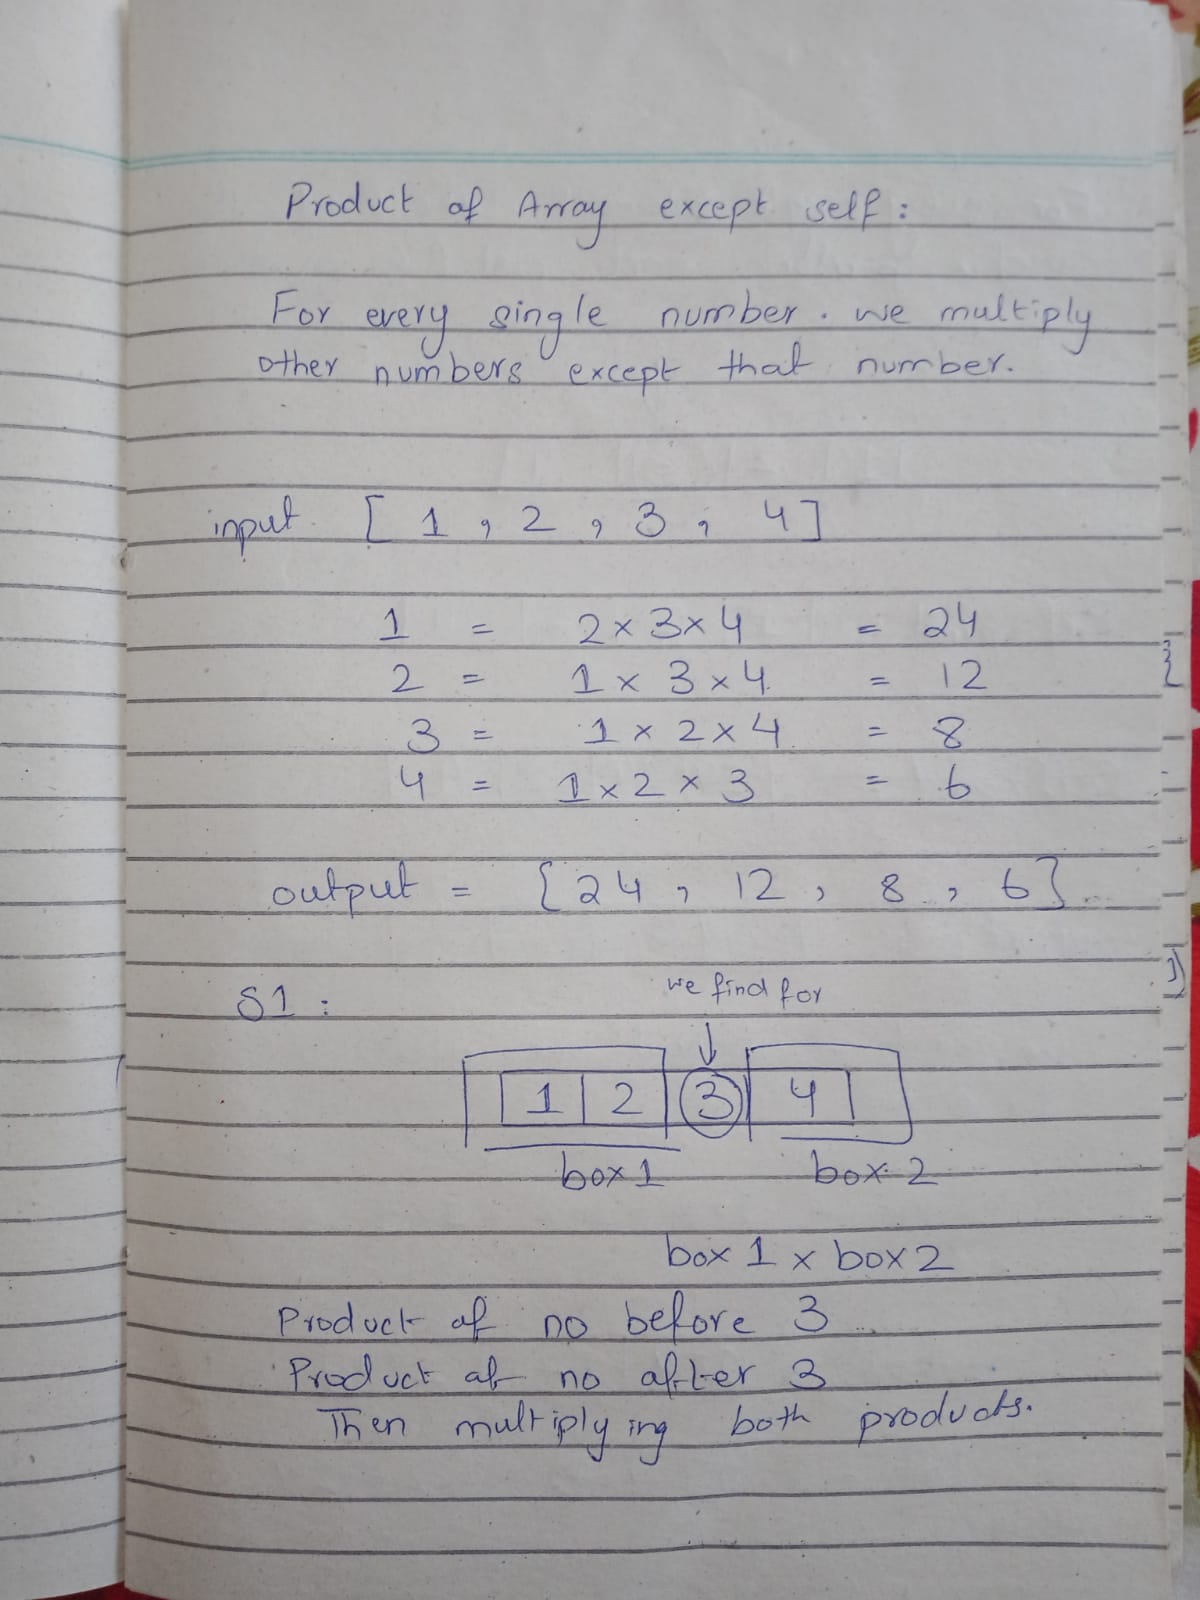 Product of Array except self :
For every single number. we multiply
other numbers except that number.
input [ 1 , 2 , 3 , 4 ]
1 = 2 x 3 x 4 = 24
2 = 1 x 3 x 4 = 12
3 = 1 x 2 x 4 = 8
4 = 1 x 2 x 3 = 6
output = [ 24 , 12 , 8 , 6 ]
S1 :
we find for
1 2 3 4
box 1 box 2
box 1 x box 2
Product of no before 3
Product of no after 3
Then multiplying both products.